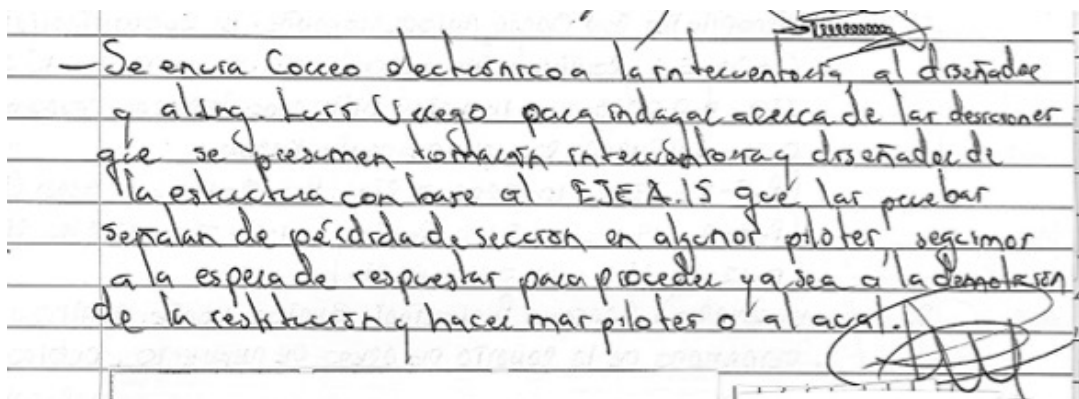 — Se envia Correo electrónico a la interventoría, al diseñador
y al Ing Luis Vuego para indagar acerca de las desiciones
que se presumen tomarán interventoria y diseñador de
la estructura con base al EJE A.15 que las pruebas
señalan de pérdida de sección en algunos pilotes, seguimos
a la espera de respuestas para proceder ya sea a la demolición
de la restitución y hacer mas pilotes o al aval.